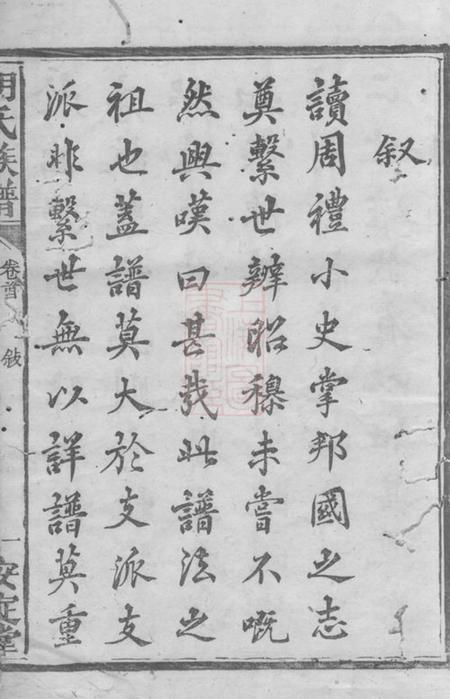 叙
讀周禮小史掌邦國之志
奠繫世辨昭穆未嘗不嘅
然興嘆曰甚哉此譜法之
祖也蓋譜莫大於支派支
派非繫世無以詳譜莫重
胡氏族譜
卷首
敍
一
安定堂